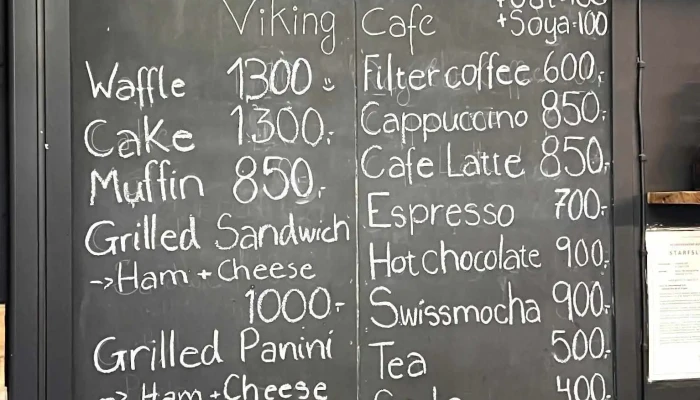 Viking
Waffle 1300
Cake 1300,-
Muffin 850,-
Grilled Sandwich
->Ham + Cheese
1000,-
Grilled Panini
-> Ham + Cheese
Cafe
+Soya-100
Filter coffee 600,-
Cappuccino 850,-
Cafe Latte 850,-
Espresso 700,-
Hot chocolate 900,-
Swissmocha 900,-
Tea 500,-
400,-